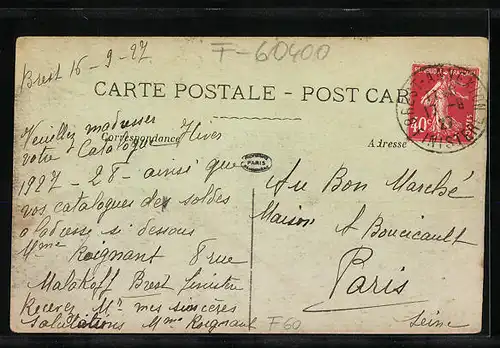 F-60400
Brest 16-9-27
CARTE POSTALE - POST CAR
40c
Veuillez m'adresser
Correspondance
votre Catalogue Hiver
Adresse
1927-28- ainsi que
PARIS
vos catalogues de soldes
à l'adresse si dessous
Mme Roignant 8 rue
Malakoff Brest Finistre
Recevez Mr mes sincères
Salutations Mme Roignant
Au Bon Marché
Maison A Boucicault
Paris
Seine
F60